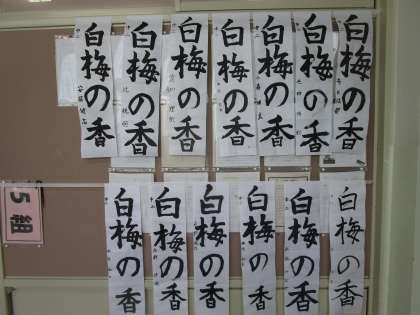 白梅の香
白梅の香
白梅の香
白梅の香
白梅の香
白梅の香
白梅の香
白梅の香
白梅の香
白梅の香
白梅の香
白梅の香
白梅の香
5組